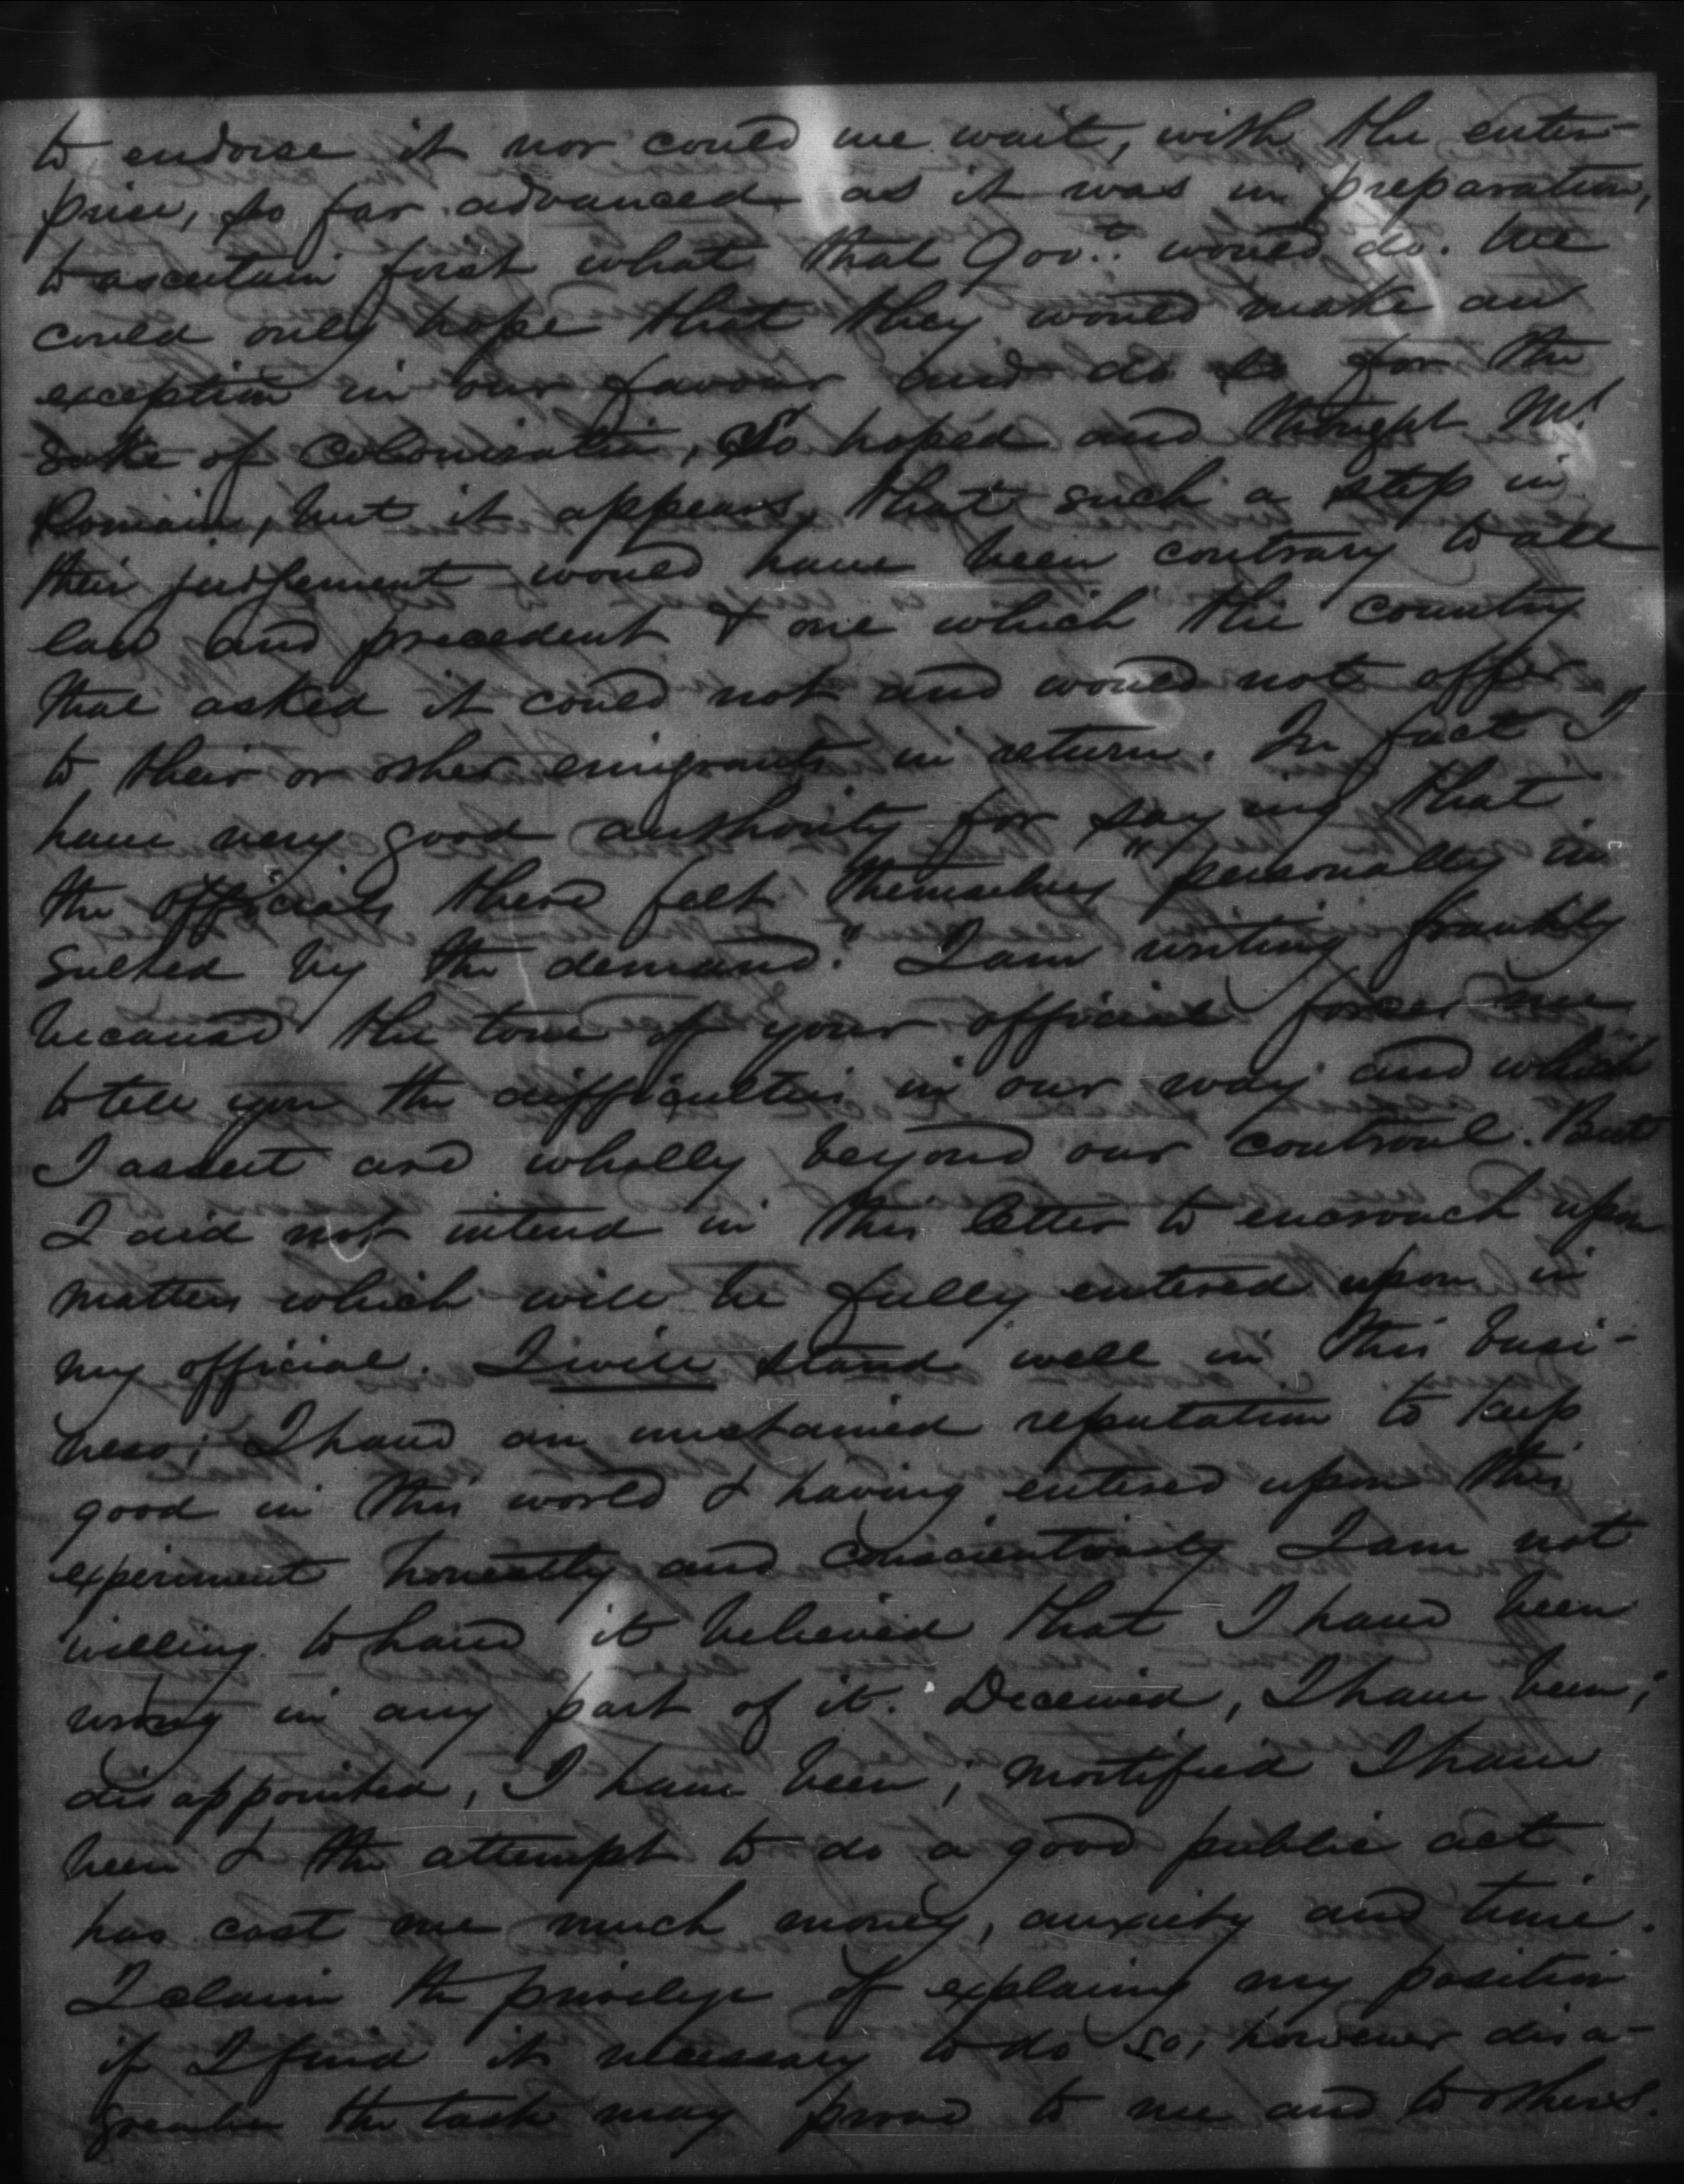 to endorse it nor could we wait, with the enter-
prise, so far advanced as it was in preparation,
to ascertain first what that Gov.t would do. We
could only hope that they would make an
exception in our favour and do so for the
sake of colonisation, So hoped and thought Mr
Romain, but it appears, that such a step in
their judgement would have been contrary to all
law and precedent & one which the country
that asked it could not and would not offer
to their or other emigrants in return. In fact I
have very good authority for saying that
the officials there felt themselves "personally in
sulted by the demand." I am writing frankly
because the tone of your official forces me
to tell you the difficulties in our way and which
I assert are wholly beyond our controul. But
I did not intend in this letter to encroach upon
matters which will be fully entered upon in
my official. I will stand well in this busi-
ness; I have an unstained reputation to keep
good in this world & having entered upon this
experiment honestly and conscientiously I am not
willing to have it believed that I have been
wrong in any part of it. Deceived, I have been;
disappointed, I have been; mortified I have
been & the attempt to do a good public act
has cost me much money, anxiety and time.
I claim the privilege of explaining my position
if I find it necessary to do so, however disa-
greeable the task may prove to me and to others.